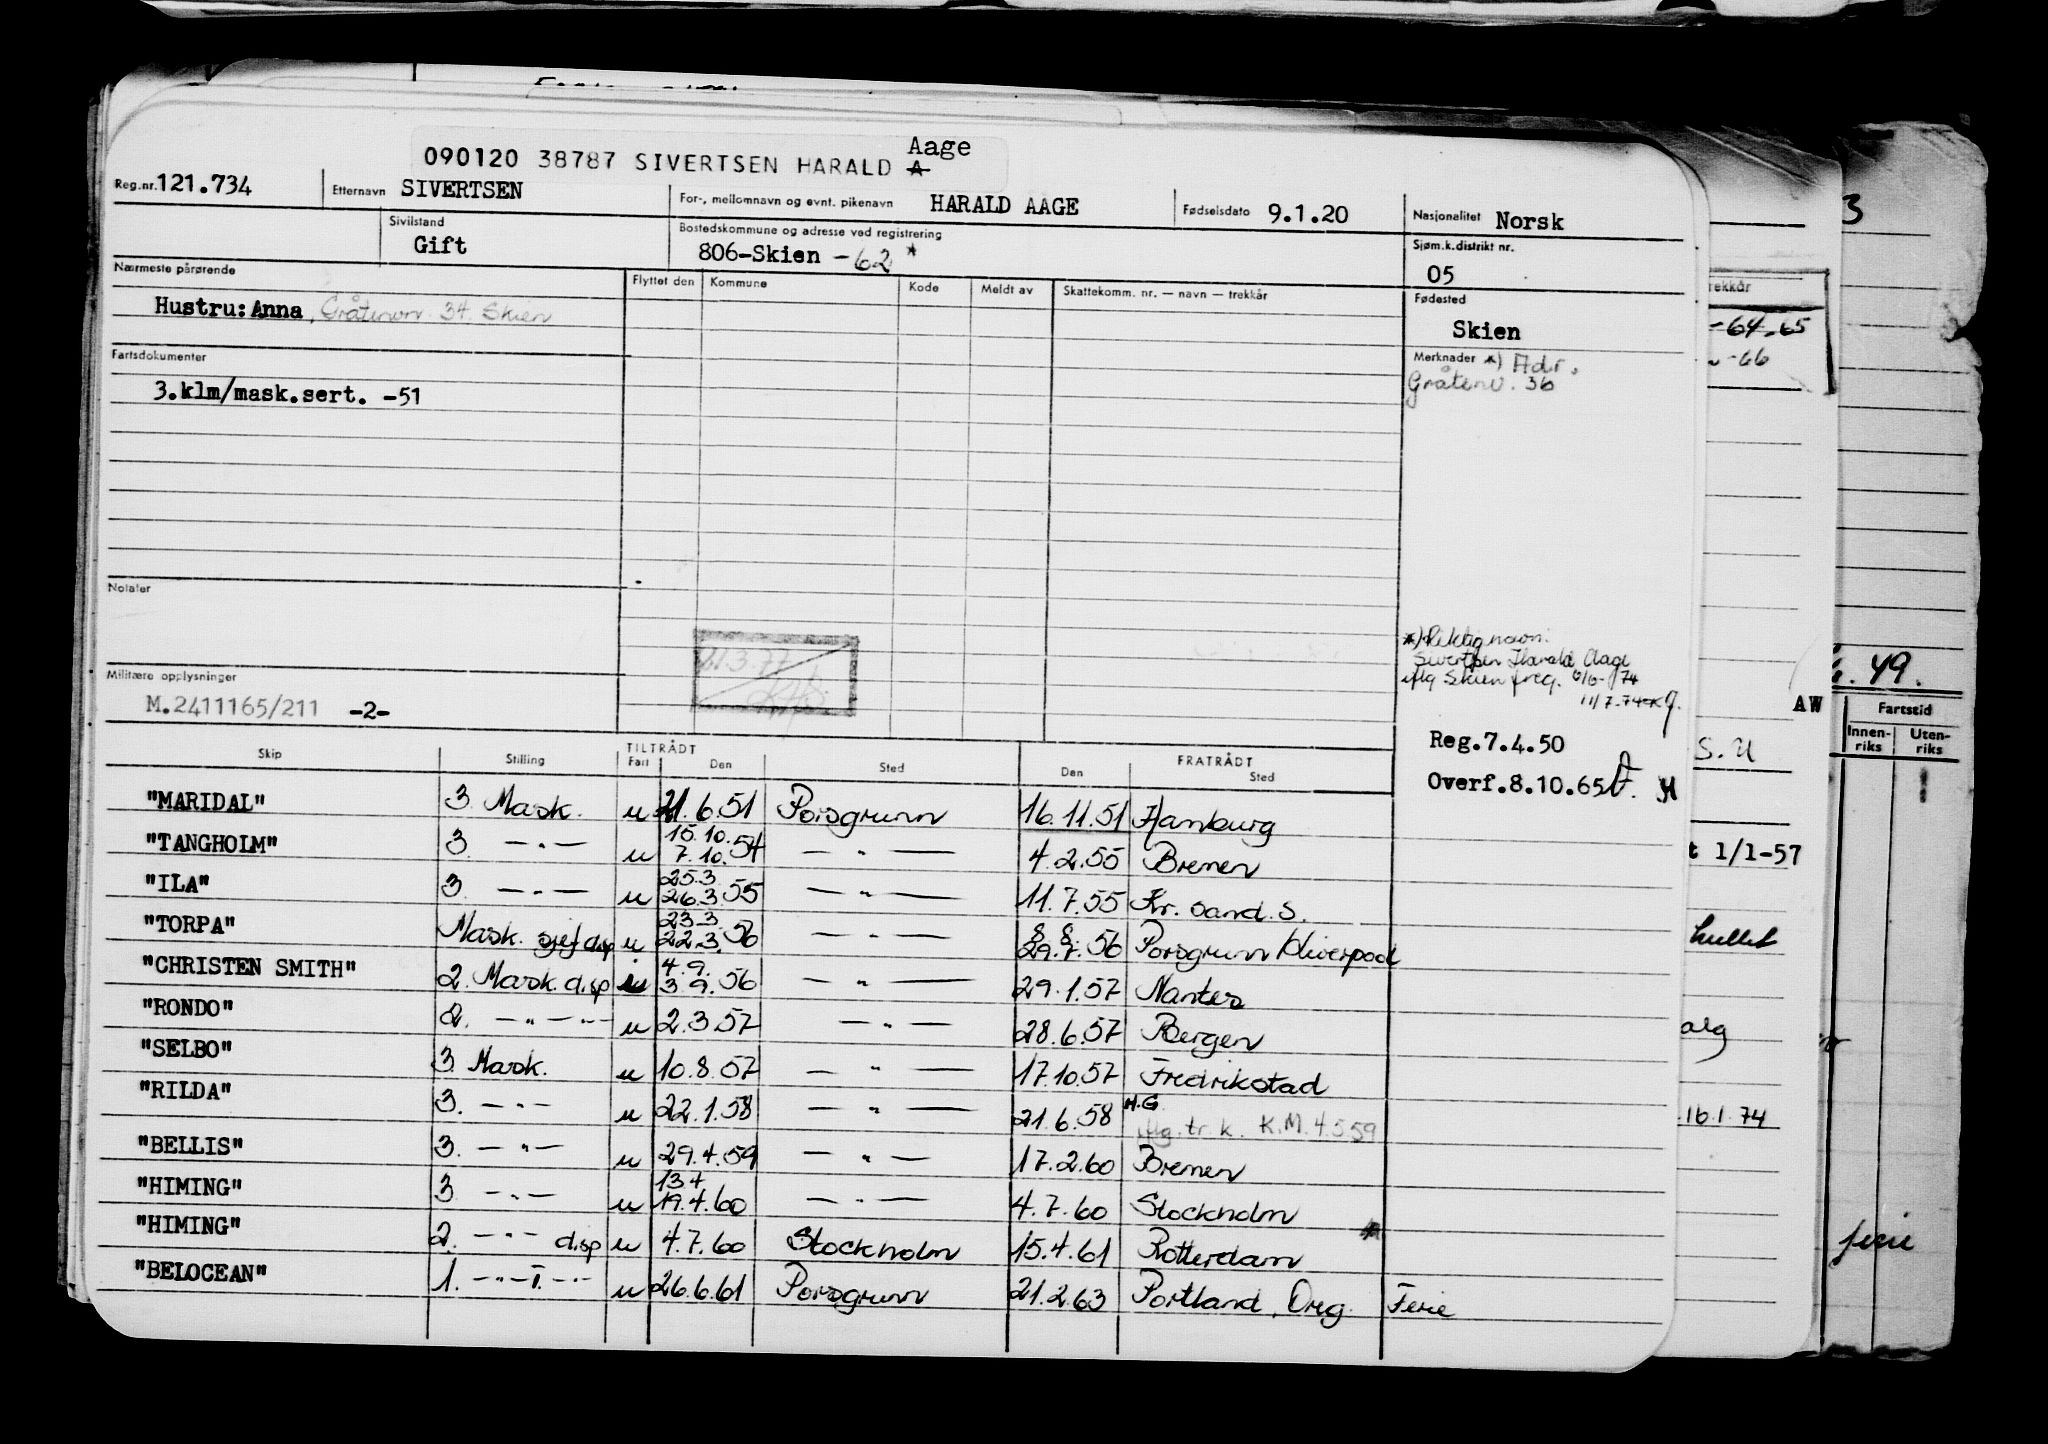 Aage
090120 38787 SIVERTSEN HARALD A
Reg.nr. 121.734 Etternavn SIVERTSEN For-, mellomnavn og evnt. pikenavn HARALD AAGE Fødselsdato 9.1.20 Nasjonalitet Norsk
Sivilstand Gift Bostedskommune og adresse ved registrering 806-Skien -62 * Sjøm.k.distrikt nr. 05
Nærmeste pårørende Flyttet den Kommune Kode Meldt av Skattekomm. nr. — navn — trekkår Fødested
Hustru: Anna, 34. Skien Skien
Fartsdokumenter Merknader *) Adr.
Gråtenv. 36
3.klm/mask.sert. -51
Notater
21.3.77
*) Riktig navn:
Sivertsen Harald Aage
iflg Skien freg. 6/6-74
11/7-74
Militære opplysninger
M.2411165/211 -2-
Reg.7.4.50
Overf.8.10.65
Skip Stilling TILTRÅDT Fart Den Sted FRATRÅDT Den Sted
"MARIDAL" 3. Mask. u 21.6.51 Porsgrunn 16.11.51 Hamburg
"TANGHOLM" 3. — " — u 15.10. 7.10.54 — " — 4.2.55 Bremen
"ILA" 3. — " — u 25.3 26.3.55 — " — 11.7.55 Kr. sand. S.
"TORPA" Mask. sjef disp u 23.3. 22.3.56 — " — 8.8. 29.7.56 Porsgrunn/Liverpool
"CHRISTEN SMITH" 2. Mask. disp u 4.9. 3.9.56 — " — 29.1.57 Nantes
"RONDO" 2. — " — " — u 2.3.57 — " — 28.6.57 Bergen
"SELBO" 3. Mask. u 10.8.57 — " — 17.10.57 Fredrikstad
"RILDA" 3. — " — u 22.1.58 — " — 21.6.58 H.G. iflg. tr. k. K.M. 4.5.59
"BELLIS" 3. — " — u 29.4.59 — " — 17.2.60 Bremen
"HIMING" 3. — " — u 13.4 19.4.60 — " — 4.7.60 Stockholm
"HIMING" 2. — " — disp u 4.7.60 Stockholm 15.4.61 Rotterdam
"BELOCEAN" 1. — " — " — u 26.6.61 Porsgrunn 21.2.63 Portland, Oreg. Ferie
3
trekkår
-64-65
-66
49.
AW
Fartstid
Innen-riks Uten-riks
S. U
1/1-57
16.1.74
ferie